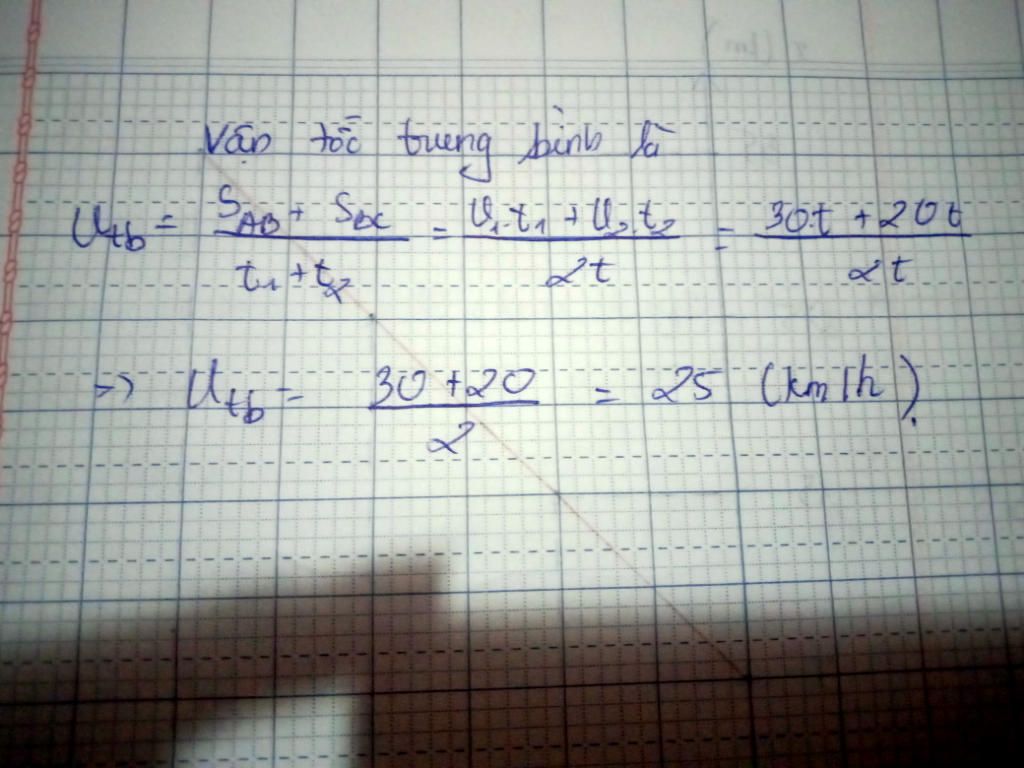 Vận tốc trung bình là
Utb = (SAB + SBC)/(t1 + t2) = (U1.t1 + U2.t2)/(2t) = (30.t + 20t)/(2t)
=> Utb = (30 + 20)/2 = 25 (km/h).